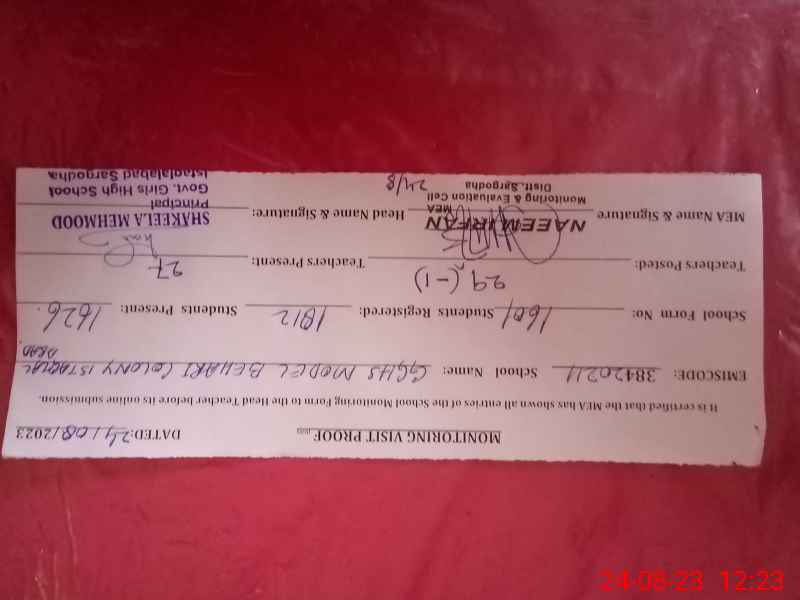 MONITORING VISIT PROOF
DATED: 24/08/2023
It is certified that the MEA has shown all entries of the School Monitoring Form to the Head Teacher before its online submission.
EMISCODE: 38420211 School Name: GGHS MODEL BEHARI COLONY ISTAQLAL
ABAD
School Form No: 1601 Students Registered: 1812 Students Present: 1626.
Teachers Posted: 29 (-1) Teachers Present: 27
MEA Name & Signature NAEEM IRFAN Head Name & Signature: SHAKEELA MEHMOOD
MEA
Monitoring & Evaluation Cell
Distt. Sargodha
24/8
Principal
Govt. Girls High School
Istaqlalabad Sargodha
24-08-23 12:23